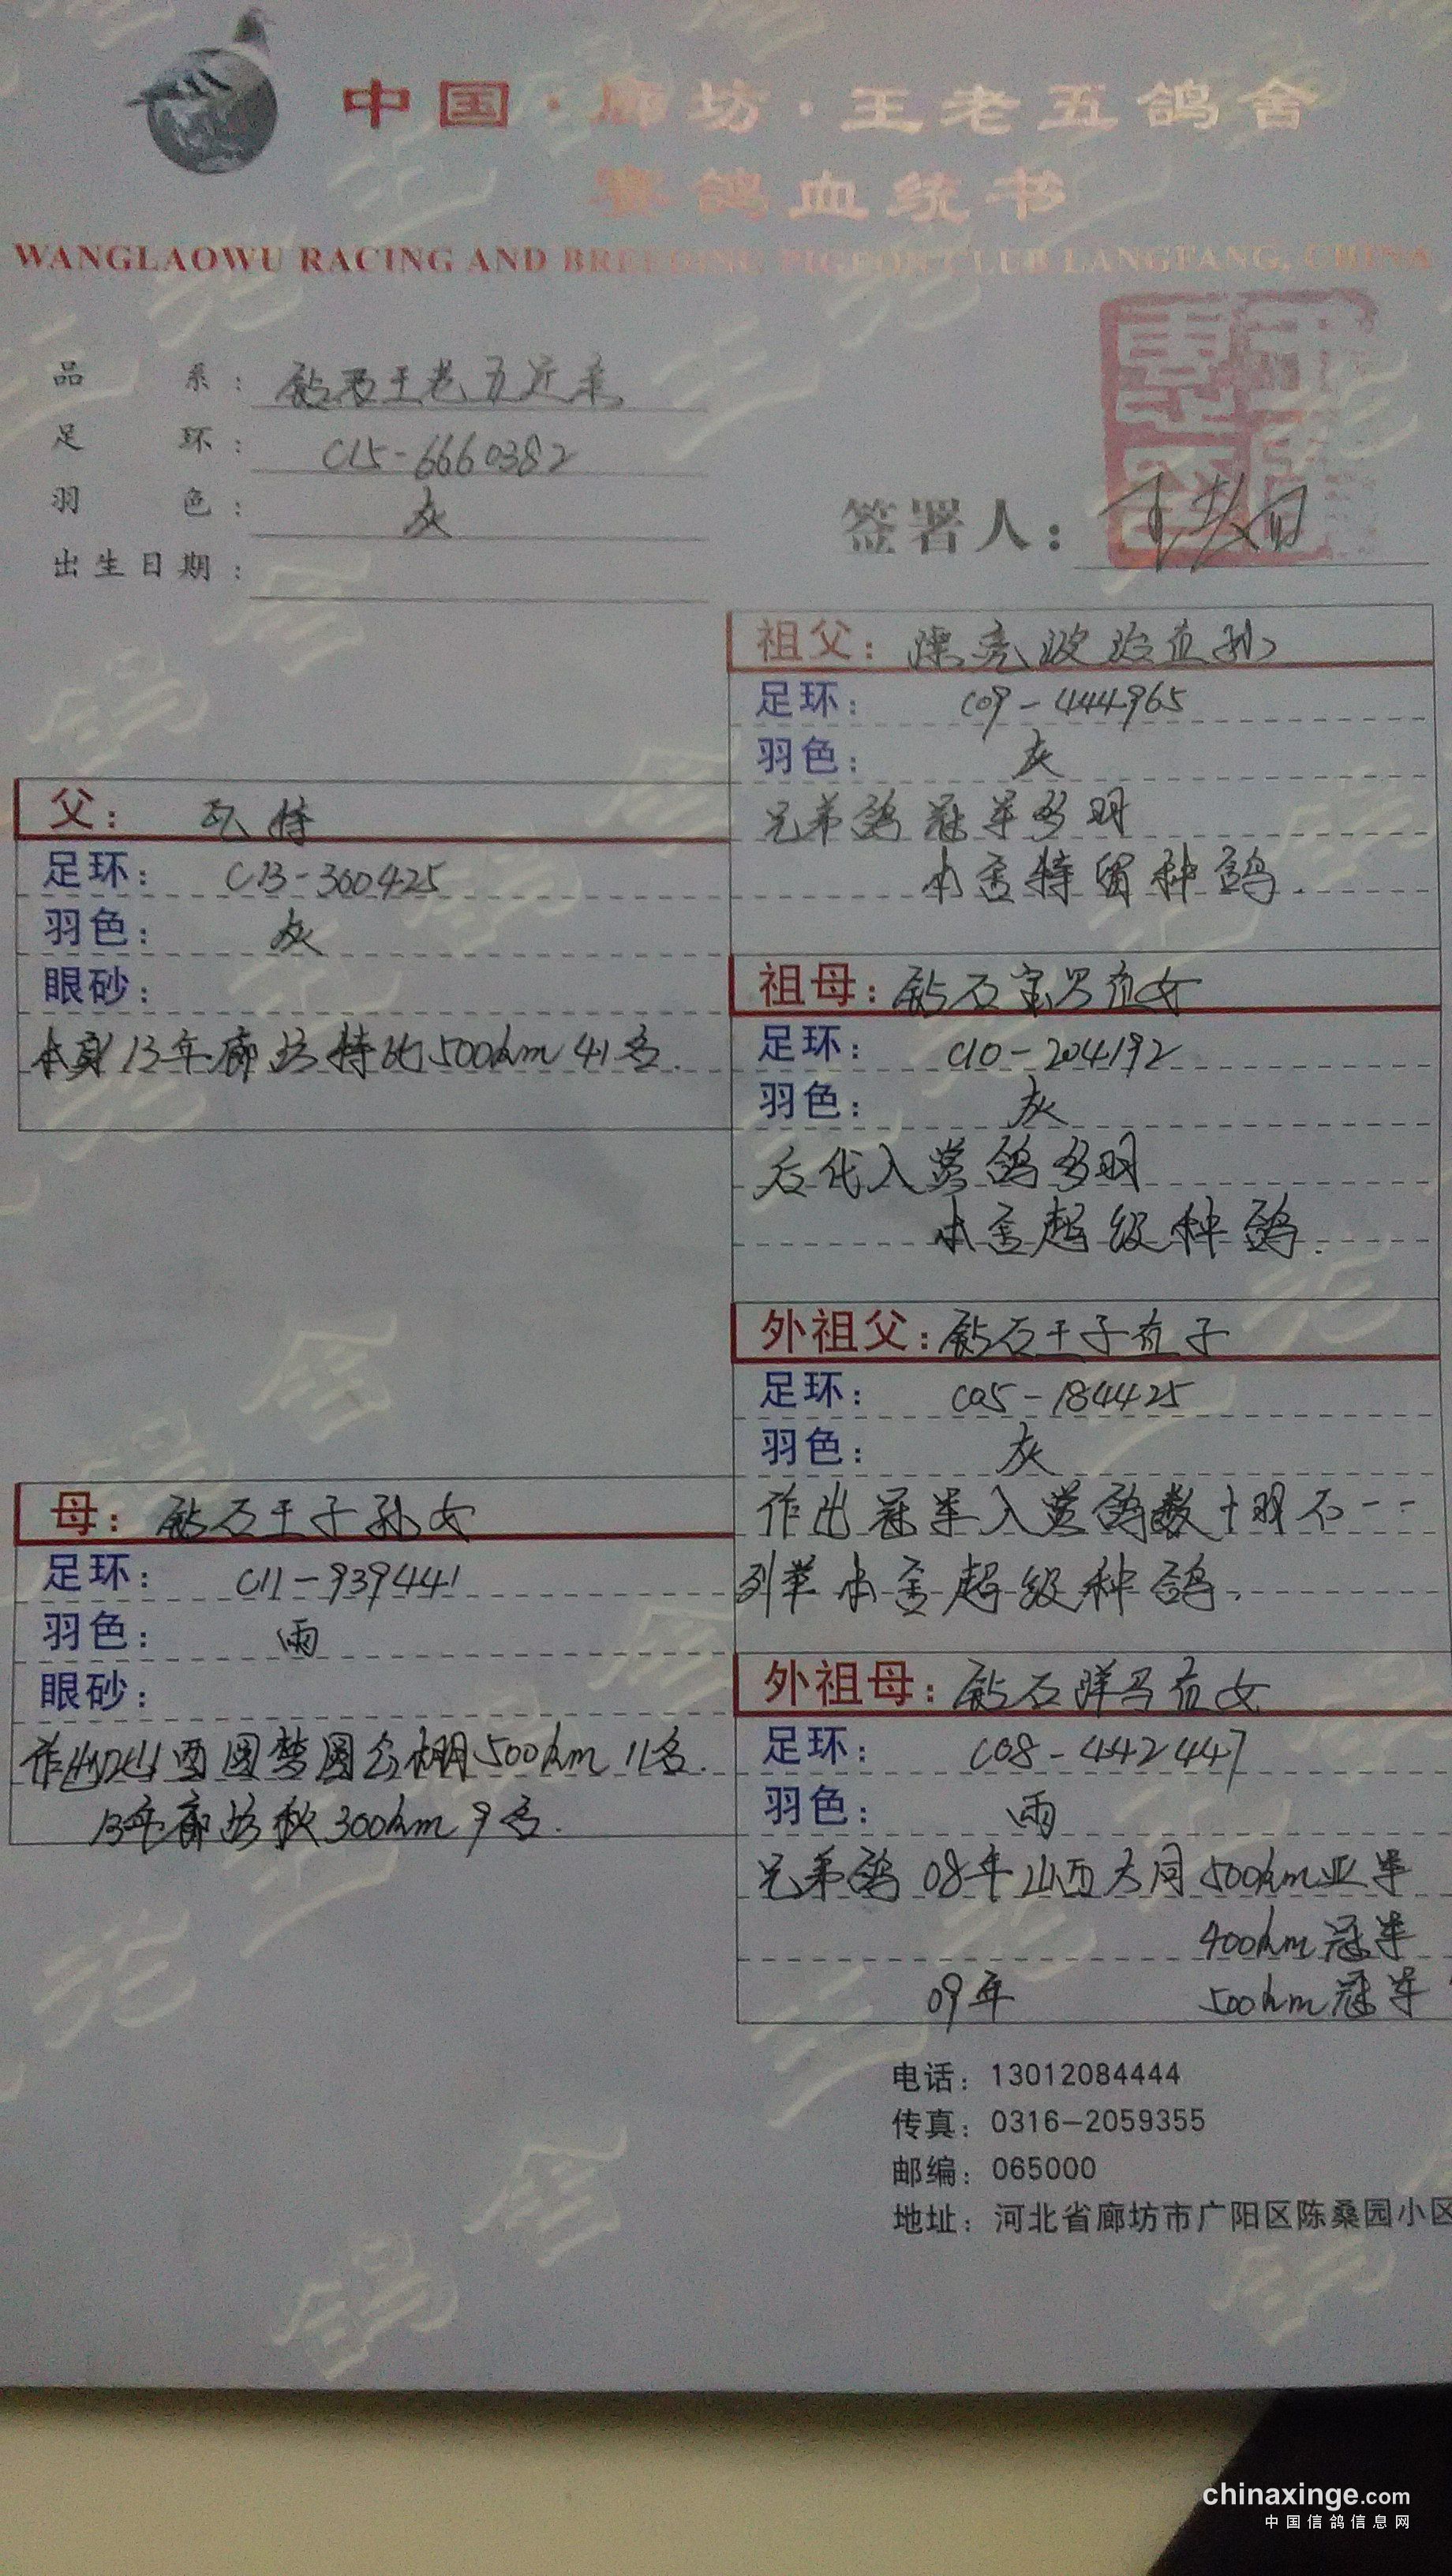 中国·廊坊·王老五鸽舍
赛鸽血统书
WANGLAOWU RACING AND BREEDING PIGEON CLUB LANGFANG, CHINA
品系：钻石王老五近亲
足环：C15-6660382
羽色：灰
出生日期：
签署人：
祖父：
足环：C09-444965
羽色：灰
兄弟鸽冠军多羽
本舍特留种鸽.
父：
足环：C13-360425
羽色：灰
眼砂：
本身13年廊坊特比500km 41名.
祖母：钻石宝贝直女
足环：C10-204192
羽色：灰
后代入赏鸽多羽
本舍超级种鸽.
外祖父：钻石王子直子
足环：C05-184425
羽色：灰
作出冠军入赏鸽数十羽不一一
列举本舍超级种鸽.
母：钻石王子孙女
足环：C11-939441
羽色：雨
眼砂：
作出12山西圆梦园公棚500km 11名.
13年廊坊秋300km 9名.
外祖母：钻石群马直女
足环：C08-442447
羽色：雨
兄弟鸽08年山西大同500km亚军
400km冠军
09年 500km冠军
电话：13012084444
传真：0316-2059355
邮编：065000
地址：河北省廊坊市广阳区陈桑园小区
chinaxinge.com
中国信鸽信息网